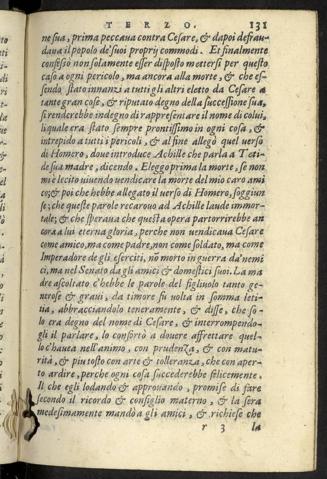 TERZO. 131
ne sua, prima peccaua contra Cesare, & dapoi defrau-
daua il popolo de' suoi proprij commodi. Et finalmente
confessò non solamente esser disposto mettersi per questo
caso a ogni pericolo, ma ancora alla morte, & che es-
sendo stato innanzi a tutti gli altri eletto da Cesare a
tante gran cose, & riputato degno della successione sua,
si renderebbe indegno di rappresentare il nome di colui,
il quale era stato sempre prontissimo in ogni cosa, &
intrepido a tutti i pericoli, & al fine allegò quel verso
di Homero, doue introduce Achille che parla a Teti-
de sua madre, dicendo. Eleggo prima la morte, se non
mi è lecito uiuendo uendicare la morte del mio caro ami
co; & poi che hebbe allegato il verso di Homero, soggiun
se; che queste parole recarono ad Achille laude immor-
tale; & che speraua che questa opera partorirebbe an
cora a lui eterna gloria, perche non uendicaua Cesare
come amico, ma come padre, non come soldato, ma come
Imperadore de gli eserciti, nō morto in guerra da' nemi
ci, ma nel Senato da gli amici & domestici suoi. La ma
dre ascoltato c'hebbe le parole del figliuolo tanto ge-
nerose & graui, da timore fu uolta in somma leti-
tia, abbracciandolo teneramente, & disse, che so-
lo era degno del nome di Cesare, & interrompendo-
gli il parlare, lo confortò a douere affrettare quel-
lo c'haueа nell'animo, con prudenza, & con matu-
rità, & piu tosto con arte & tolleranza, che con aper-
to ardire, perche ogni cosa succederebbe felicemente.
Il che egli lodando & approuando, promise di fare
secondo il ricordo & consiglio materno, & la sera
medesimamente mandò a gli amici, & richiese che
r 3 la